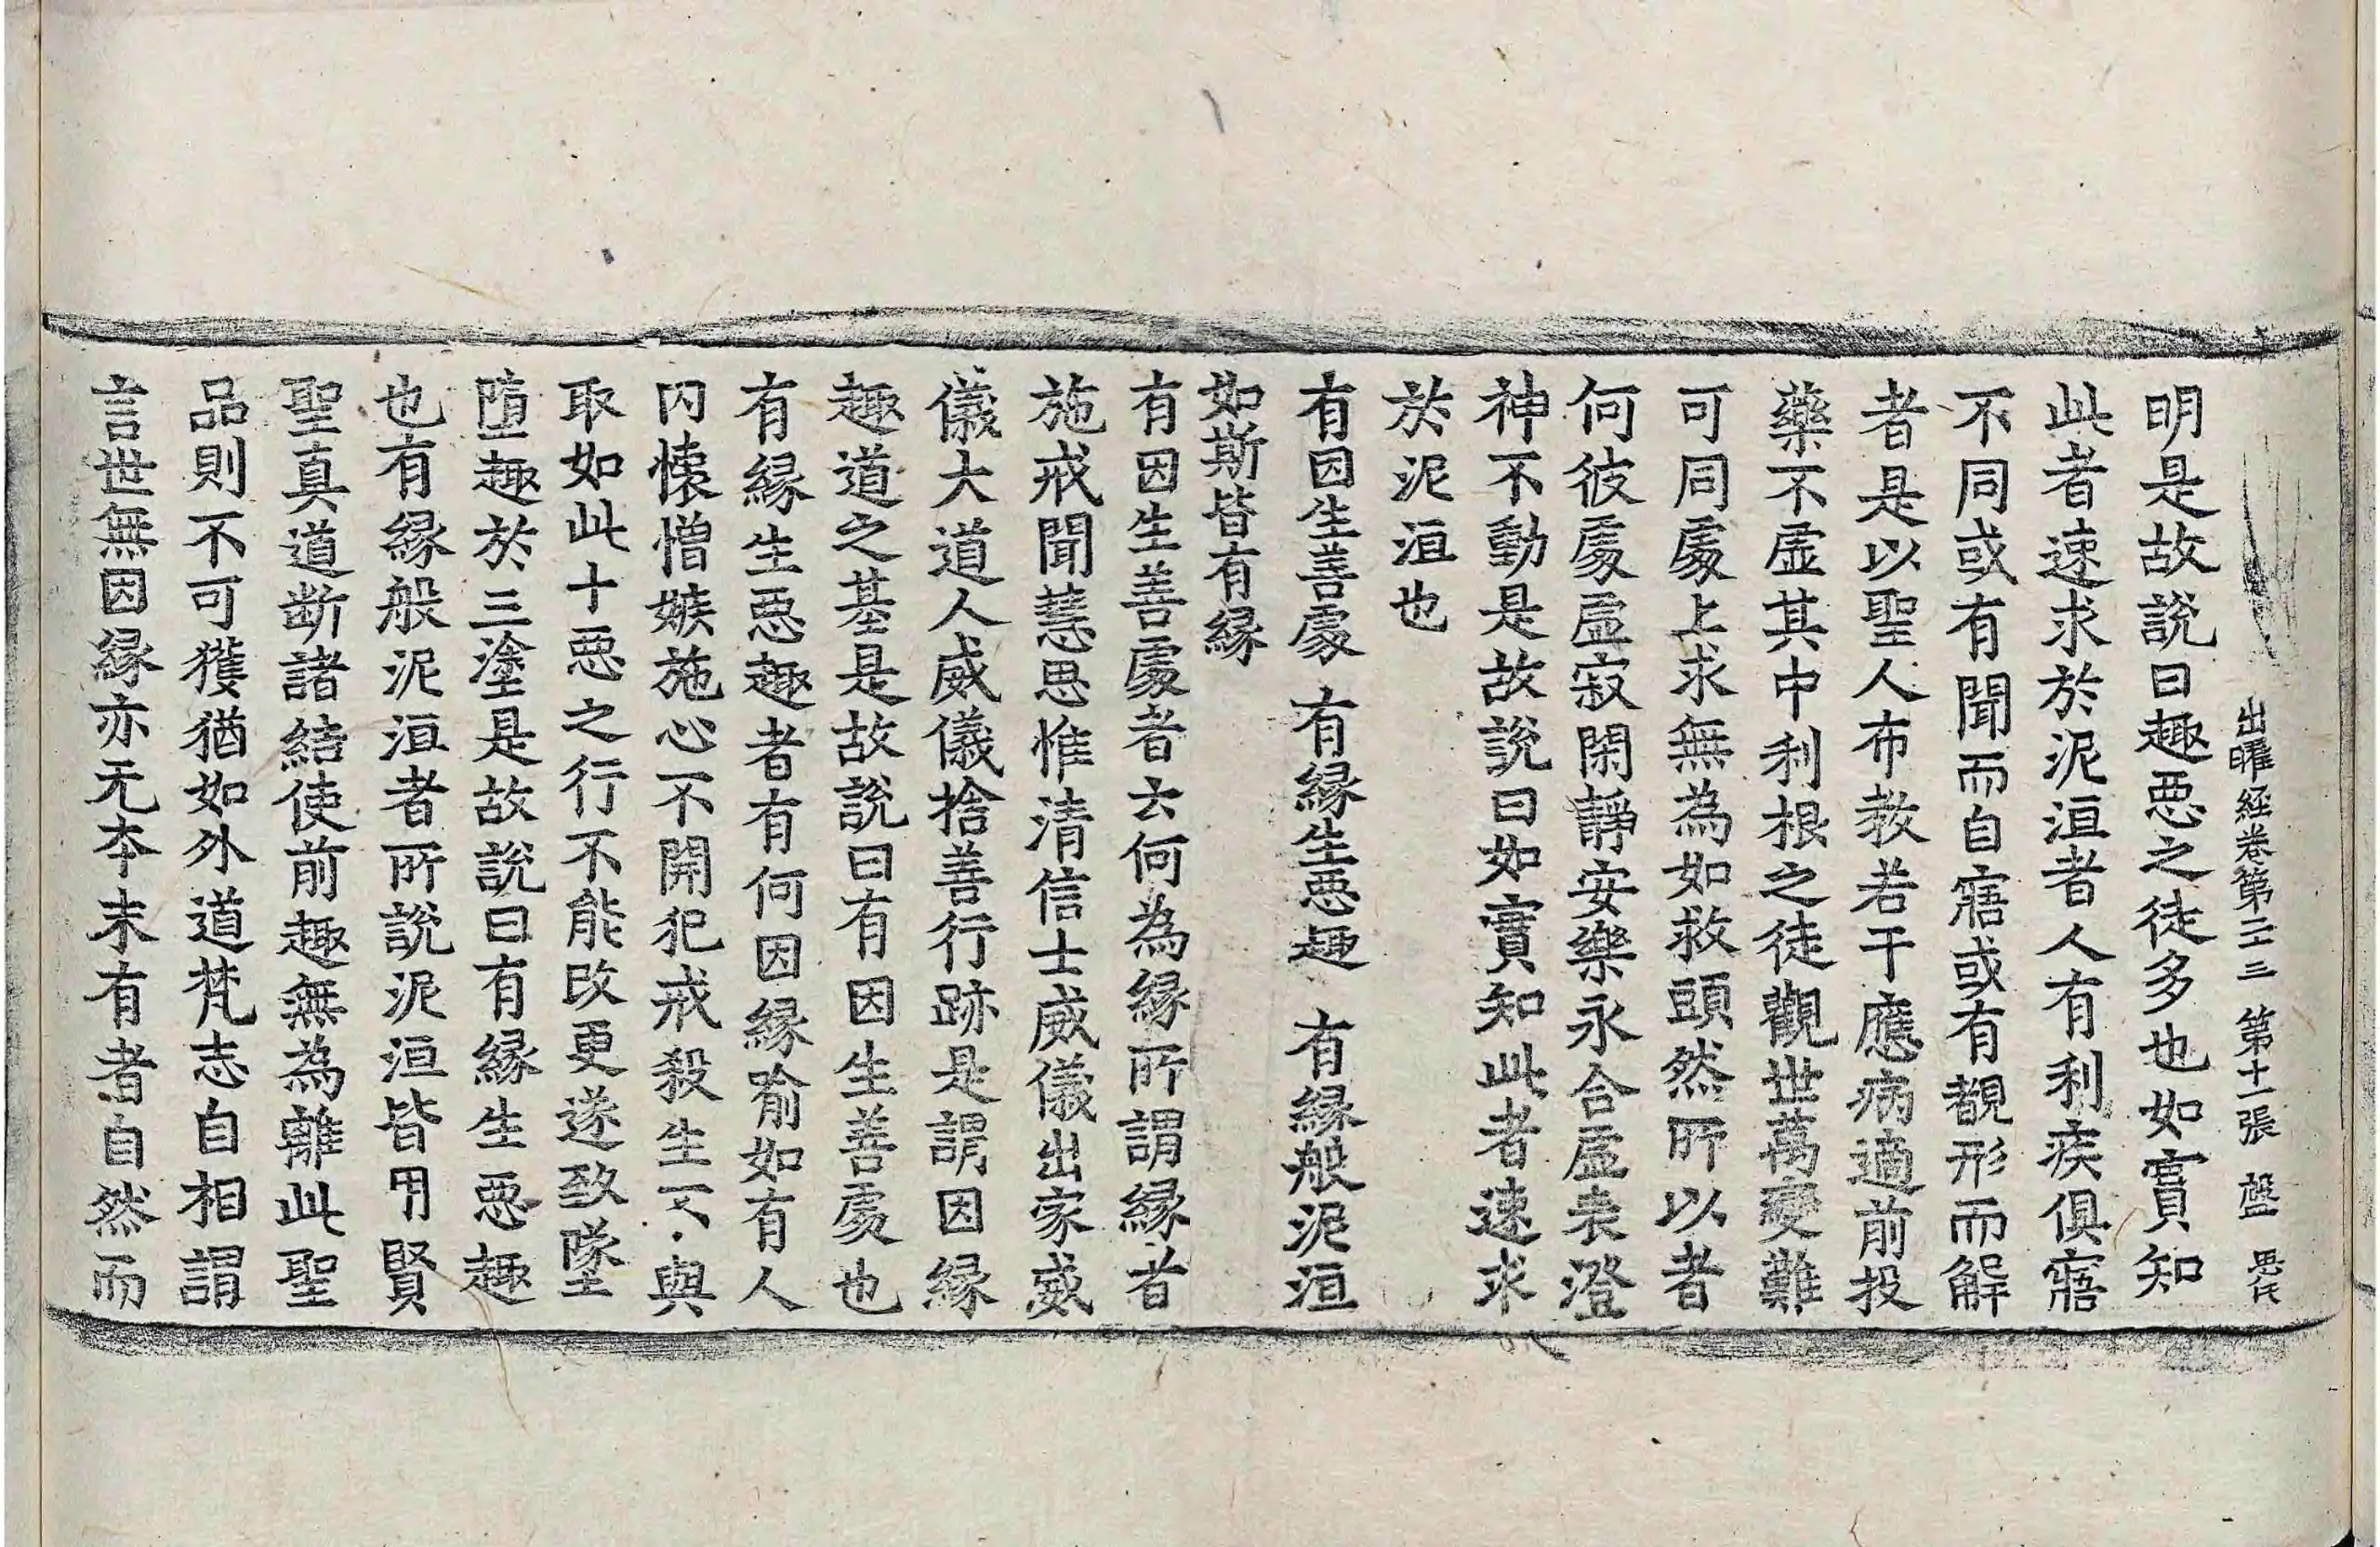 出曜経卷第二十三 第十一張 盤
明是故說曰趣惡之徒多也如實知
此者速求於泥洹者人有利疾俱寤
不同或有聞而自寤或有覩形而解
者是以聖人布教若干應病適前投
藥不虛其中利根之徒觀世萬變難
可同處上求無為如救頭然所以者
何彼處虛寂閑靜安樂永合虛表澄
神不動是故說曰如實知此者速求
於泥洹也
有因生善處 有緣生惡趣 有緣般泥洹
如斯皆有緣
有因生善處者云何為緣所謂緣者
施戒聞慧思惟清信士威儀出家威
儀大道人威儀捨善行跡是謂因緣
趣道之基是故說曰有因生善處也
有緣生惡趣者有何因緣喻如有人
内懷憎嫉施心不開犯戒殺生不與
取如此十惡之行不能改更遂致墜
墮趣於三塗是故說曰有緣生惡趣
也有緣般泥洹者所說泥洹皆用賢
聖真道斷諸結使前趣無為離此聖
品則不可獲猶如外道梵志自相謂
言世無因緣亦无本末有者自然而